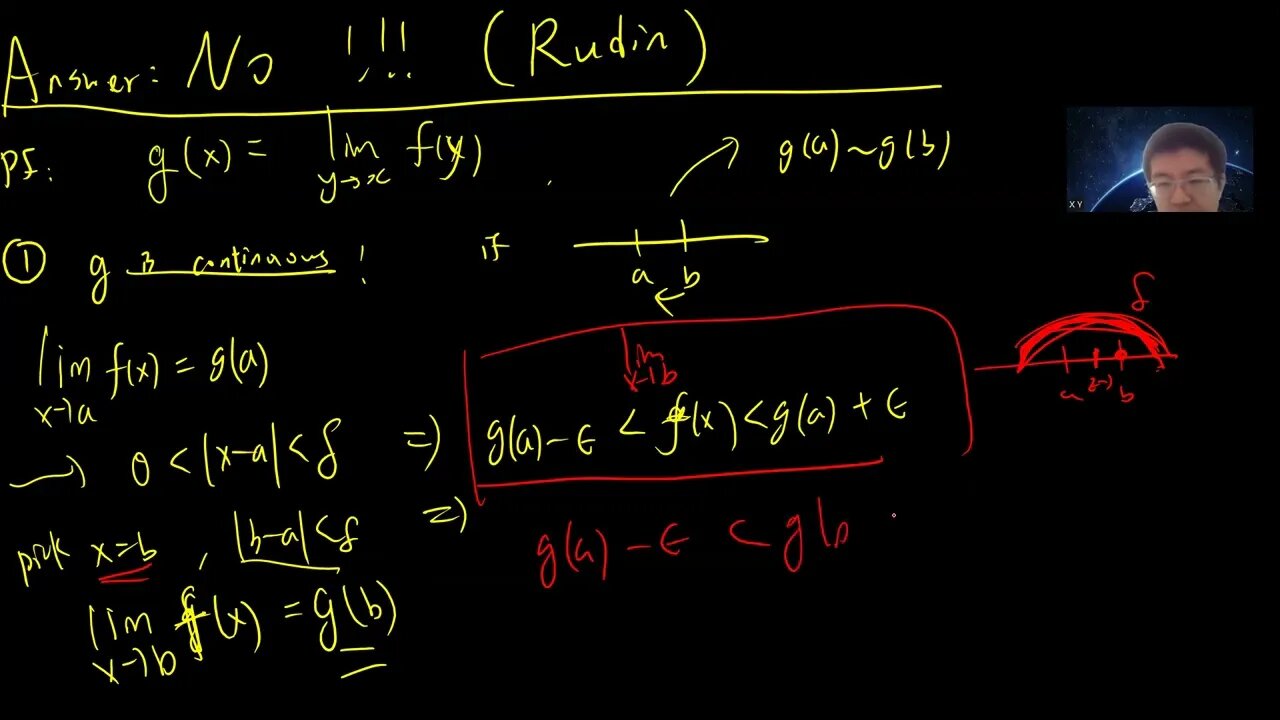 Answer: No !!! (Rudin)
pf: g(x) = lim f(y)
y→x
g(a) ~ g(b)
① g is continuous !
if
a b
lim f(x) = g(a)
x→a
lim
x→b
δ
a b
→ 0 < |x-a| < δ ⇒ g(a) - ε < f(x) < g(a) + ε
pick x=b , |b-a| < δ ⇒ g(a) - ε < g(b
lim f(x) = g(b)
x→b
X Y